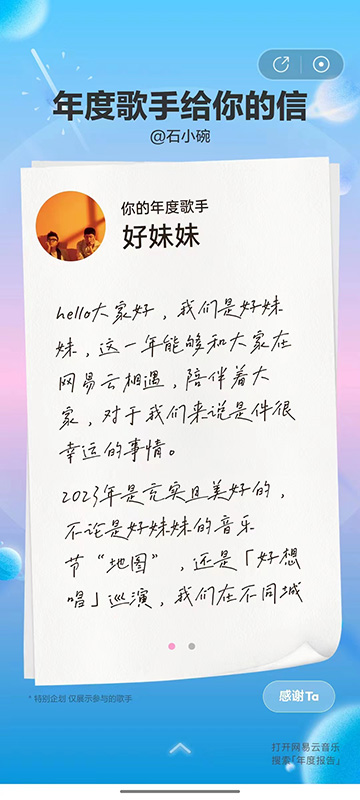 年度歌手给你的信
@石小碗
你的年度歌手
好妹妹
hello大家好，我们是好妹
妹，这一年能够和大家在
网易云相遇，陪伴着大
家，对于我们来说是件很
幸运的事情。
2023年是充实且美好的，
不论是好妹妹的音乐
节“地图”，还是「好想
唱」巡演，我们在不同城
* 特别企划 仅展示参与的歌手
感谢Ta
打开网易云音乐
搜索「年度报告」